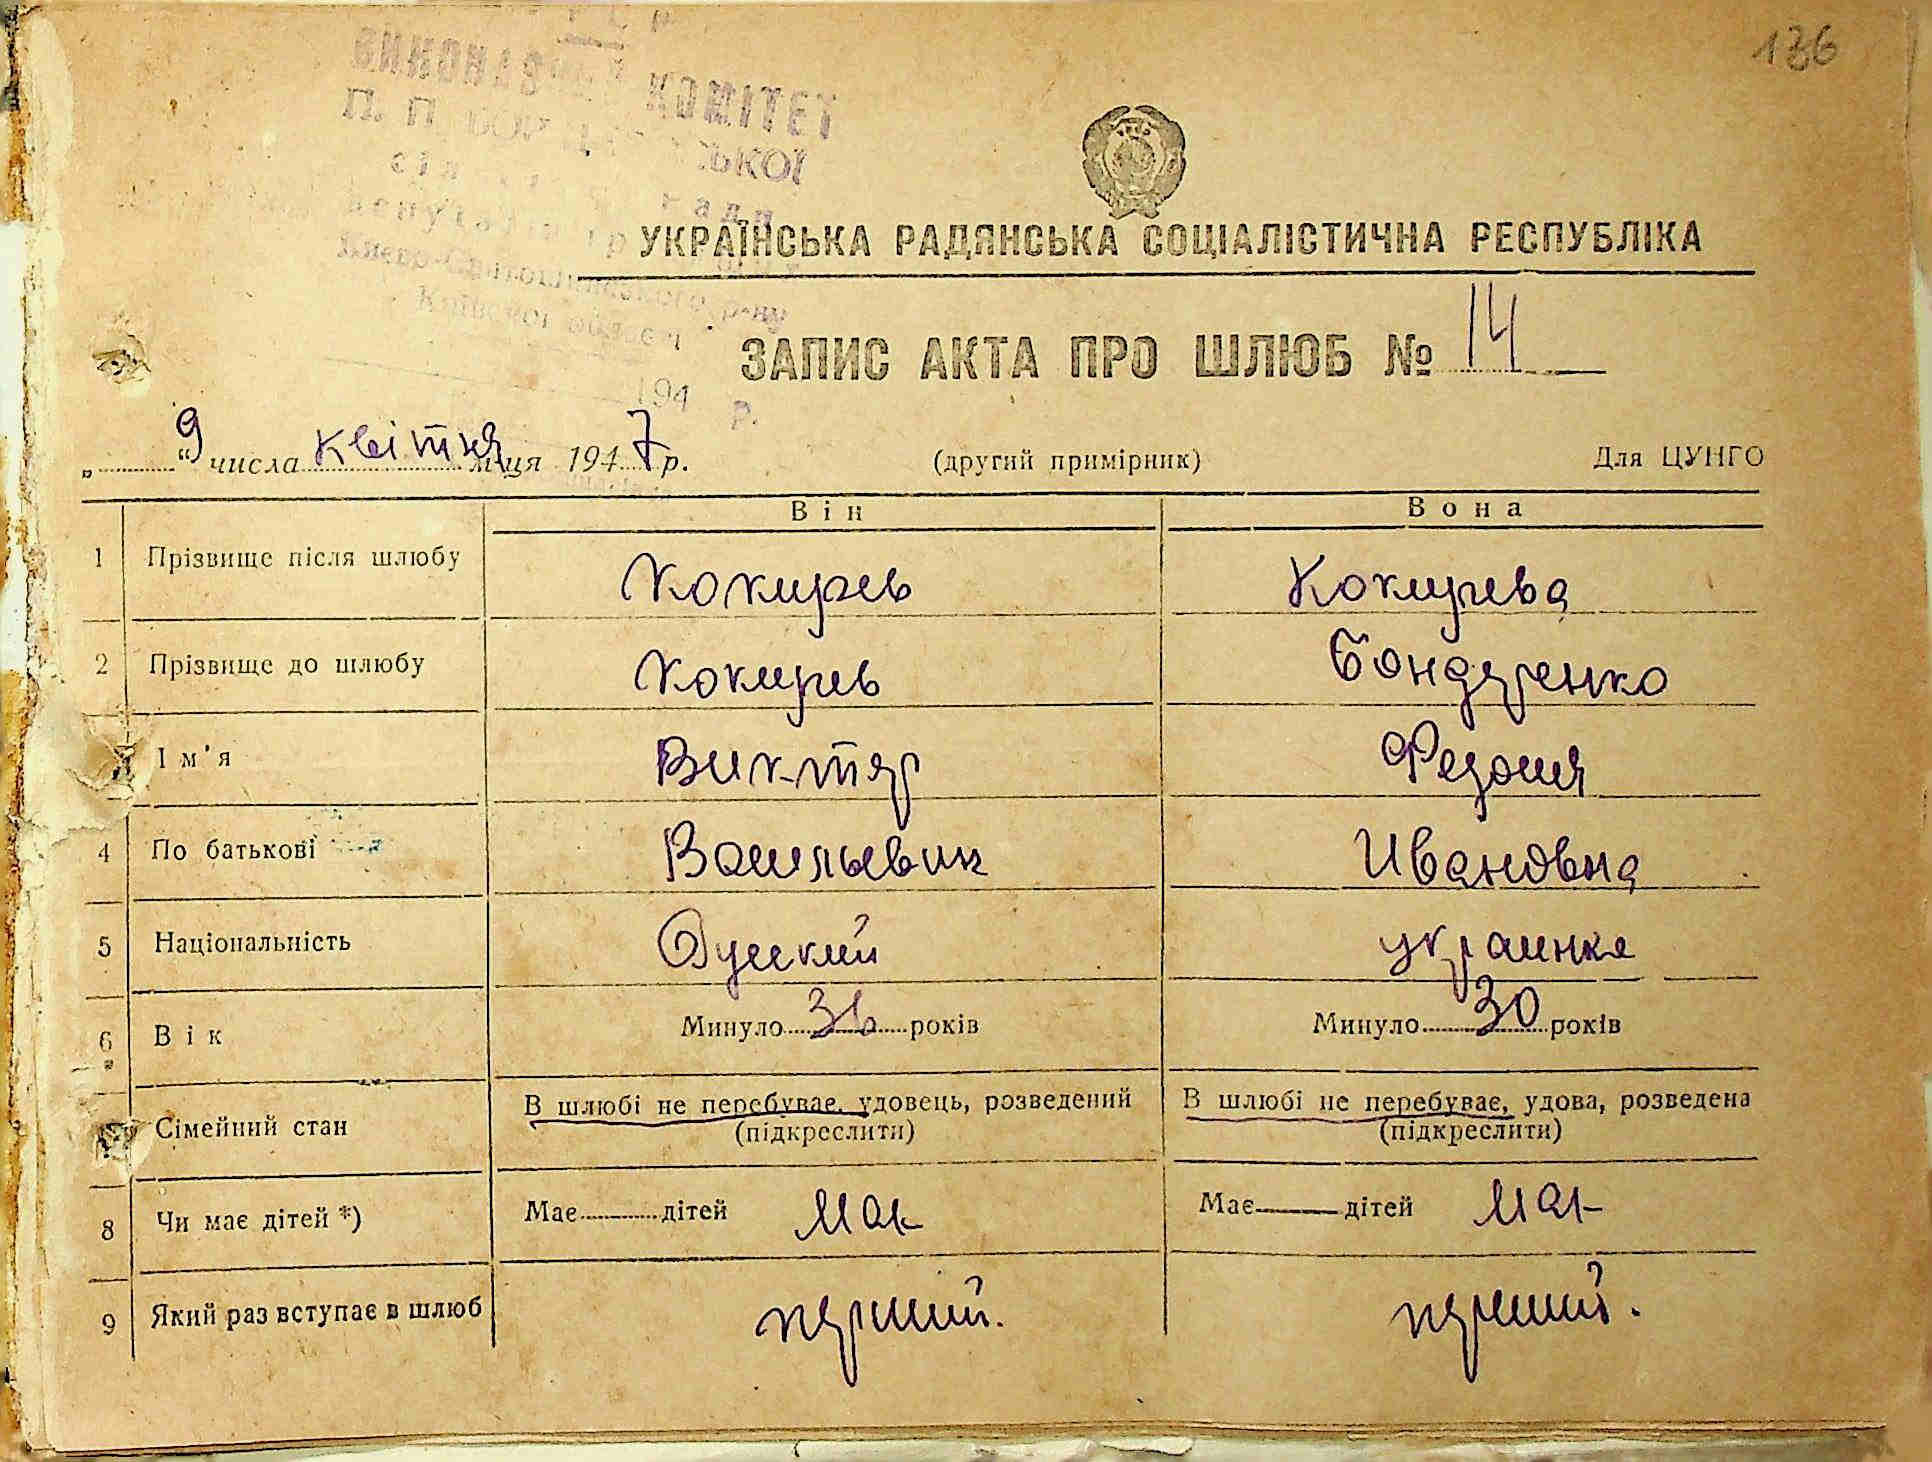 136
КОМІТЕТ
УКРАЇНСЬКА РАДЯНСЬКА СОЦІАЛІСТИЧНА РЕСПУБЛІКА
р-ну
ЗАПИС АКТА ПРО ШЛЮБ № 14
194 р.
„ 9 “ числа квітня м-ця 1947 р. (другий примірник) Для ЦУНГО
Він Вона
1 Прізвище після шлюбу Кокирев Кокирева
2 Прізвище до шлюбу Кокирев Бондаренко
Ім'я Виктор Федося
4 По батькові Васильевич Ивановна
5 Національність Русский украинка
6 Вік Минуло років Минуло 30 років
Сімейний стан В шлюбі не перебуває, удовець, розведений (підкреслити) В шлюбі не перебуває, удова, розведена (підкреслити)
8 Чи має дітей *) Має дітей Має дітей
9 Який раз вступає в шлюб перший. перший.